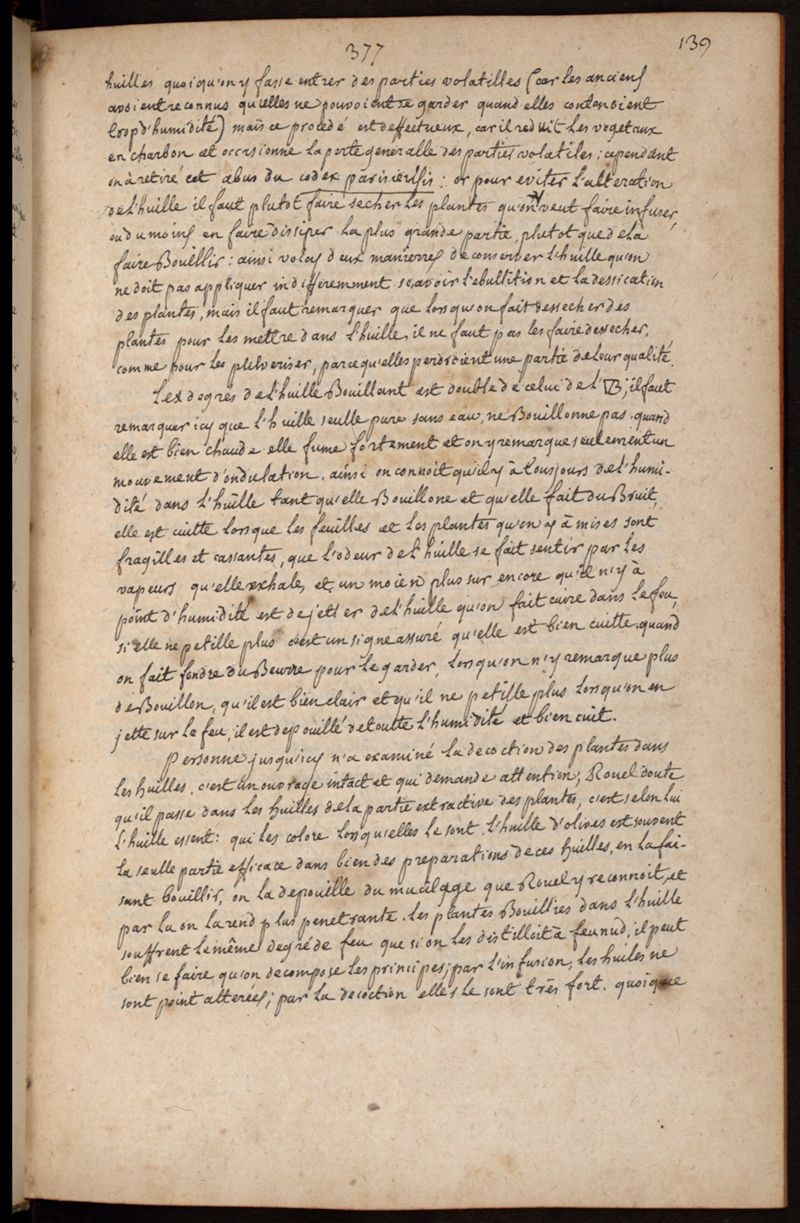 377
139
huilles quoiqu'on y fasse entrer des parties volatilles (car les anciens
avoient reconnus qu'elles ne pouvoient se garder quand elles contenoient
trop d'humidité) mais ce procedé est deffectueux, car il reduit les vegetaux
en charbon et occasionne la perte generalle des parties volatiles : cependant
on à retiré cet abus du codex parisiensis : or pour eviter l'alteration
de l'huille il faut plutot faire secher les plantes qu'on veut faire infuser,
ou du moins en faire dissiper la plus grande partie, plutot que de la
faire Bouillir : ainsi voicy deux manierres de conserver l'huille qu'on
ne doit pas appliquer indifferemment scavoir l'ebullition et la dessication
des plantes, mais il faut remarquer que lorsqu'on fait dessecher des
plantes pour les mettre dans l'huille, il ne faut pas les faire dessecher,
comme pour les pulveriser, parcequ'elles perdroient une partie de leur qualité.
Les degres de l'huille Bouillant est double de celui de l'🜄, il faut
remarquer icy que l'huille seulle pure sans eau, ne Bouillonne pas. quand
elle est bien chaude elle fume fortement et on y remarque seulement un
mouvement d'ondulation. ainsi on connoit qu'il y à tousjours de l'humi-
dité dans l'huille tant qu'elle Bouillone et qu'elle fait du Bruit,
elle est cuitte lorsque les feuilles et les plantes qu'on y à mises sont
fragilles et cassantes, que l'odeur de l'huille se fait sentir par les
vapeurs qu'elle exhale, et un moien plus sur encore qu'il n'y à
point d'humidité est de jetter de l'huille qu'on fait cuire dans le feu,
si elle ne petille plus c'est un signe assuré qu'elle est bien cuitte. quand
on fait fondre du Beurre pour le garder, lorsqu'on n'y remarque plus
de Bouillon, qu'il est bien clair et qu'il ne petille plus lorsqu'on en
jette sur le feu, il est depouillé de toutte l'humidité et bien cuit.
Personne jusqu'icy n'a examiné la decoction des plantes dans
les huilles, c'est un ouvrage intact et qui demande attention; Rouel doute
qu'il passe dans les huilles de la partie extractive des plantes, c'est selon lui
l'huille essent: qui les colore lorsqu'elles le sont. l'huille d'olives est souvent
la seulle partie efficace dans bien des preparations de ces huilles, en la fai-
sant bouillir, on la depouille du mucilage que Rouel y reconnoit, et
par la on la rend plus penetrante. les plantes Bouillies dans l'huille
souffrent le même degré de feu que si on les distilloit à feu nud, il peut
bien se faire qu'on decompose les principes; par l'infusion, les huiles ne
sont point alterées; par la decoction elles le sont très fort. quoique